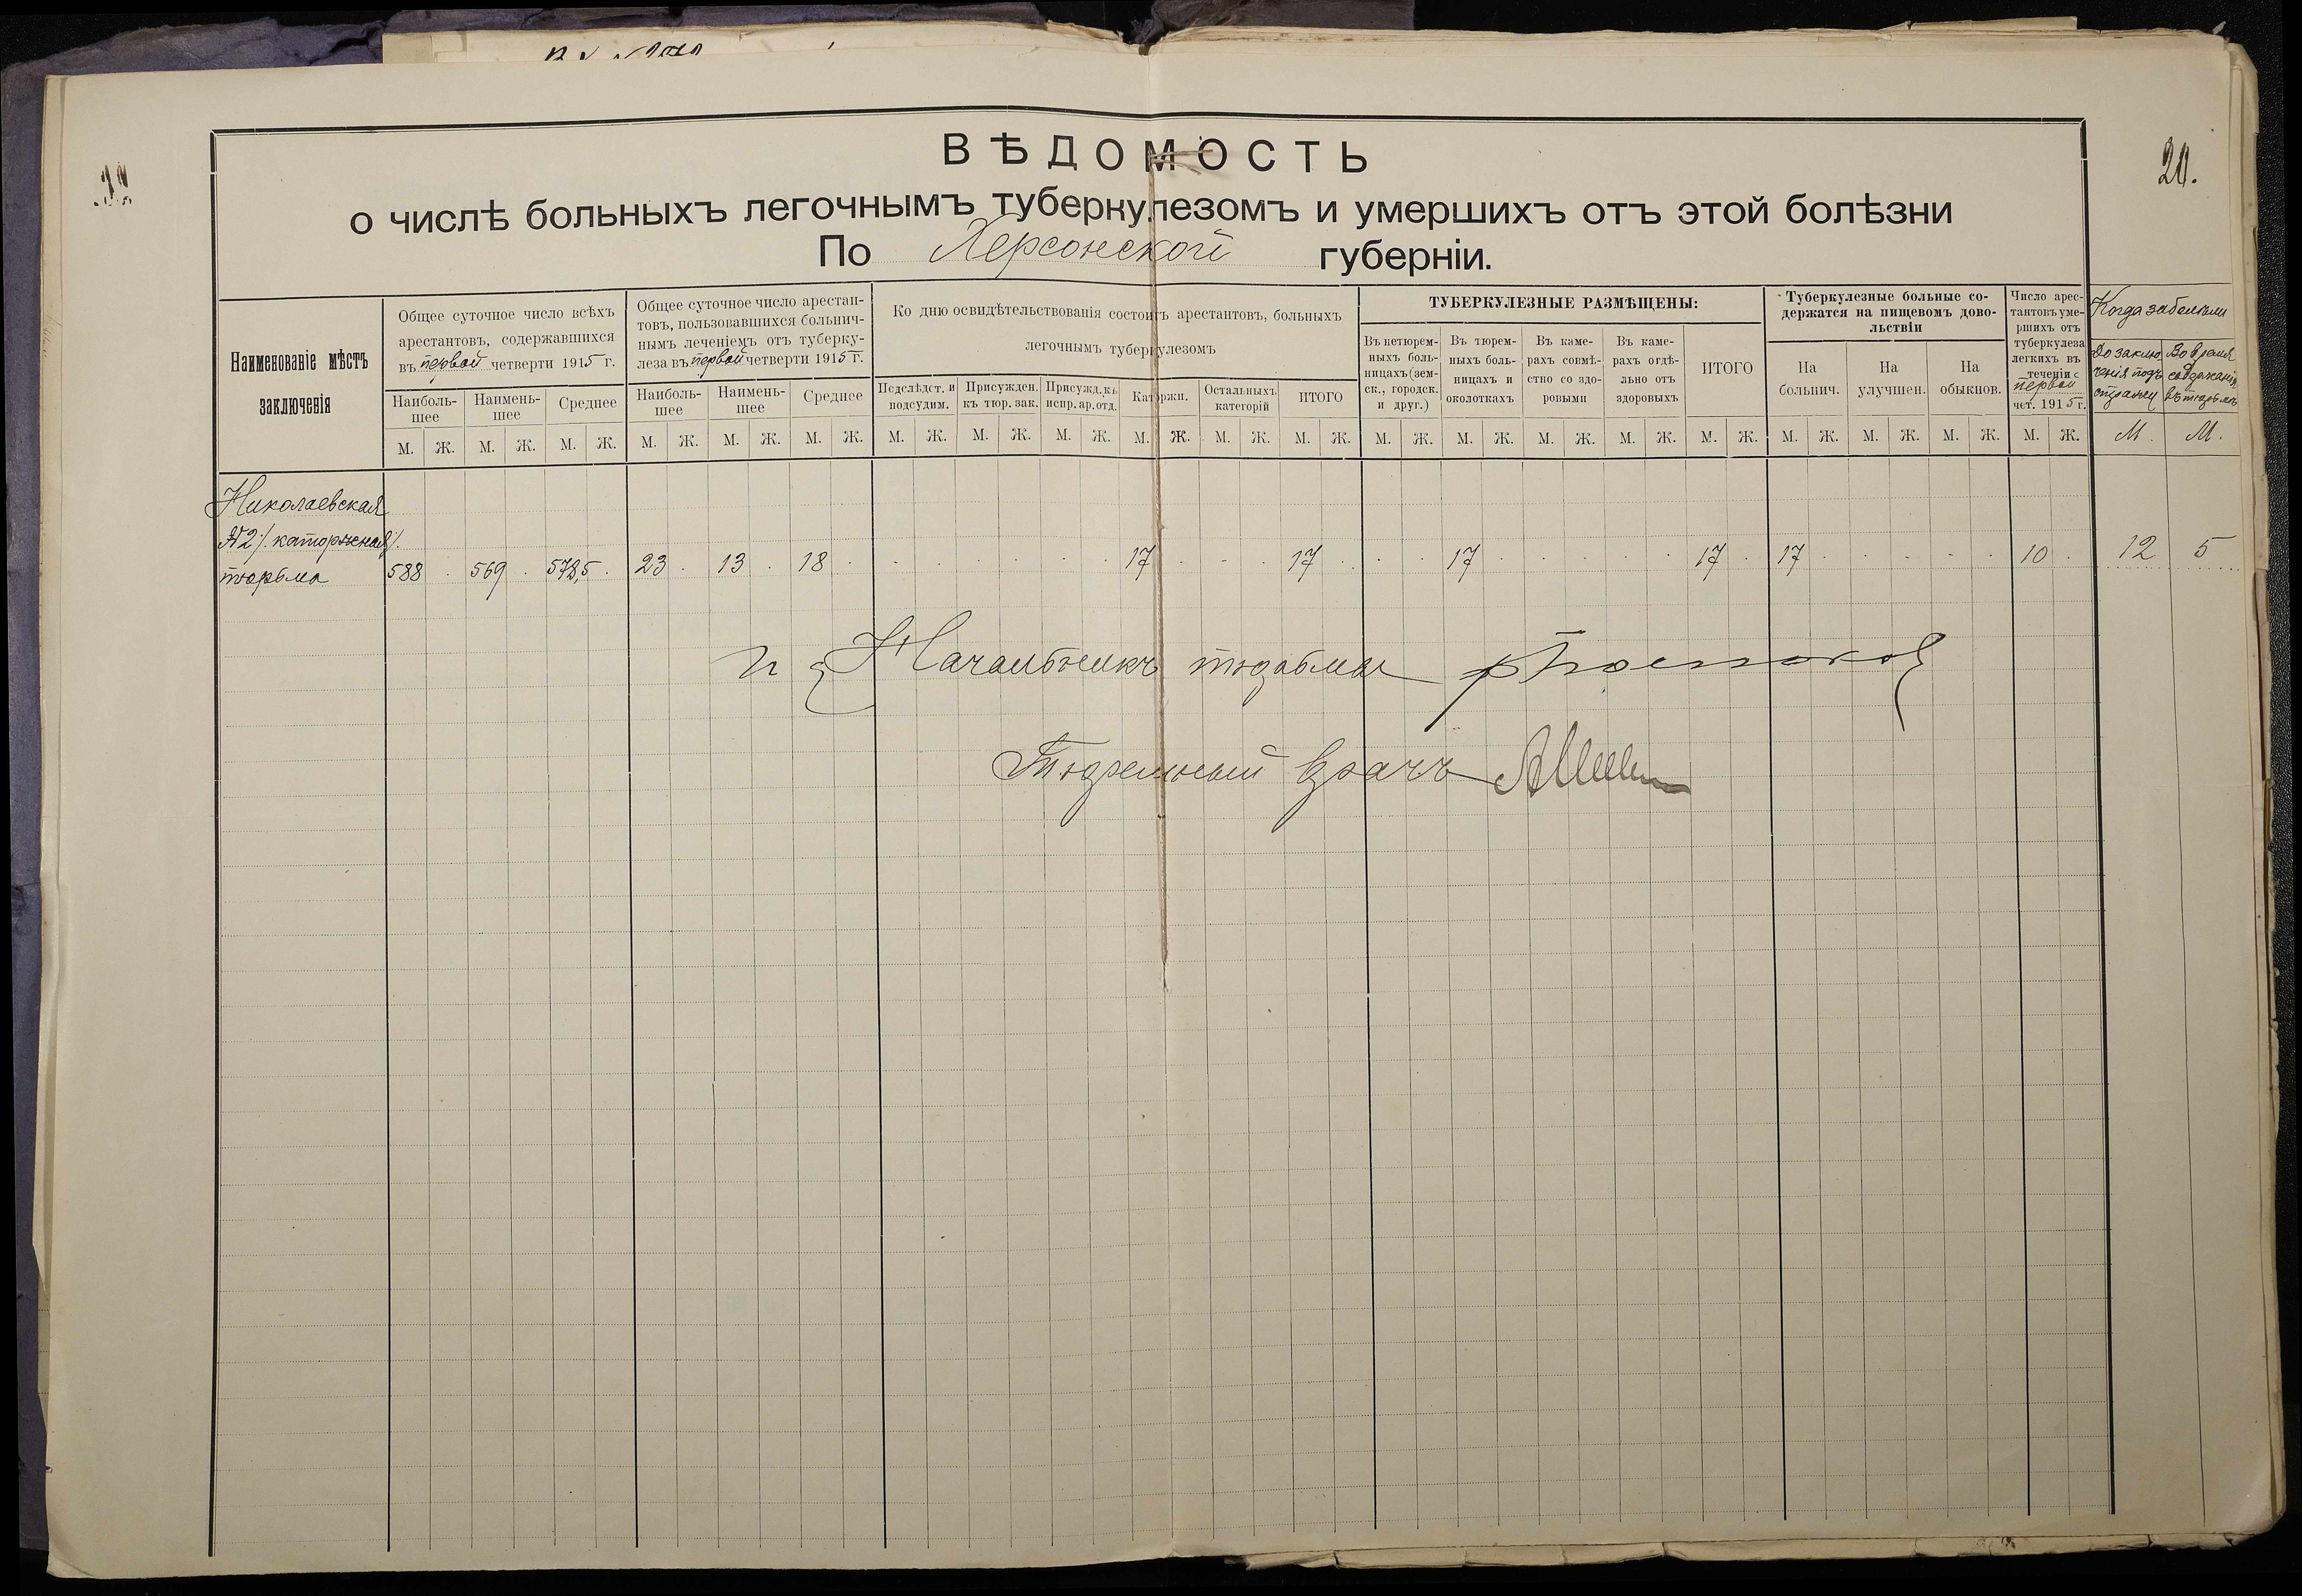 20.
ВѢДОМОСТЬ
о числѣ больныхъ легочнымъ туберкулезомъ и умершихъ отъ этой болѣзни
По Херсонской губерніи.
Наименованіе мѣстъ
заключенія
Общее суточное число всѣхъ
арестантовъ, содержавшихся
въ первой четверти 1915 г.
Наиболь-
шее
Наимень-
шее
Среднее
Общее суточное число арестан-
товъ, пользовавшихся больнич-
нымъ леченіемъ отъ туберку-
леза въ первой четверти 1915 г.
Наиболь-
шее
Наимень-
шее
Среднее
Ко дню освидѣтельствованія состоитъ арестантовъ, больныхъ
легочнымъ туберкулезомъ
Подслѣдст. и
подсудим.
Присужден.
къ тюр. зак.
Присужд. къ
испр. ар. отд.
Каторжн.
Остальныхъ
категорій
ИТОГО
ТУБЕРКУЛЕЗНЫЕ РАЗМѢЩЕНЫ:
Въ нетюрем-
ныхъ боль-
ницахъ (зем-
ск., городск.
и друг.)
Въ тюрем-
ныхъ боль-
ницахъ и
околоткахъ
Въ каме-
рахъ совмѣ-
стно со здо-
ровыми
Въ каме-
рахъ отдѣ-
льно отъ
здоровыхъ
ИТОГО
Туберкулезные больные со-
держатся на пищевомъ дово-
льствіи
На
больнич.
На
улучшен.
На
обыкнов.
Число арес-
тантовъ уме-
ршихъ отъ
туберкулеза
легкихъ въ
теченіи
первой
чет. 1915 г.
Когда заболѣли
До заклю-
ченія подъ
стражу
Во время
содержанія
въ тюрьмѣ
М. Ж. М. Ж. М. Ж. М. Ж. М. Ж. М. Ж. М. Ж. М. Ж. М. Ж. М. Ж. М. Ж. М. Ж. М. Ж. М. Ж. М. Ж. М. Ж. М. Ж. М. Ж. М. Ж. М. Ж. М. Ж. М. М.
Николаевская
№2 /каторжная/
тюрьма 588 569 578,5 23 13 18 17 17 17 17 17 10 12 5
Начальникъ тюрьмы
Тюремный врачъ